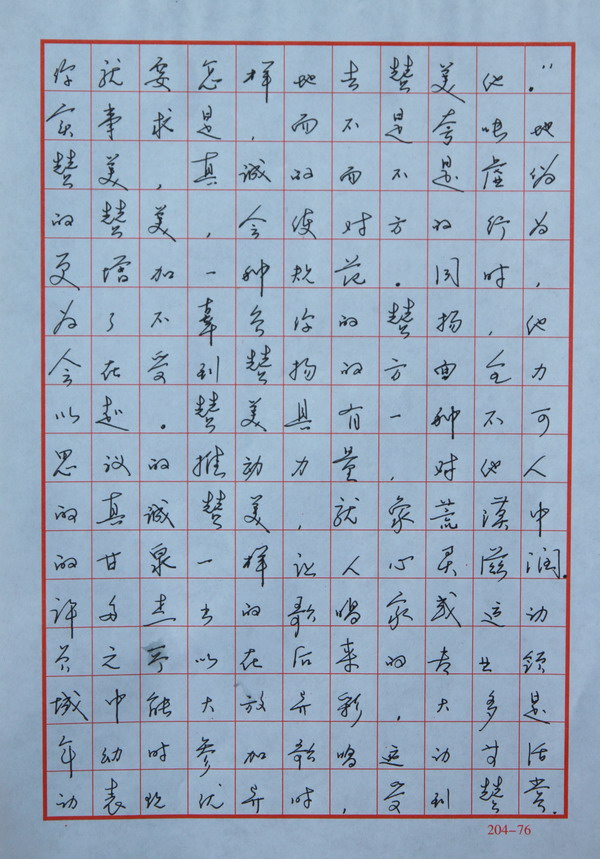 你就要怎样地去赞美他。”
实事求是，而不是夸张地
赞美，真诚的而不是虚伪
的赞美，会使对方的行为
更增加一种规范。同时，
为了不辜负你的赞扬，他
会在受到赞扬的方面全力
以赴。赞美具有一种不可
思议的推动力量，对他人
的真诚赞美，就象荒漠中
的甘泉一样让人心灵滋润。
许多杰出的歌唱家或运动
员之所以在后来的专业领
域中能大放异彩，大多是
年幼时参加歌唱运动等活
动表现优异时，受到赞赏。
204-76